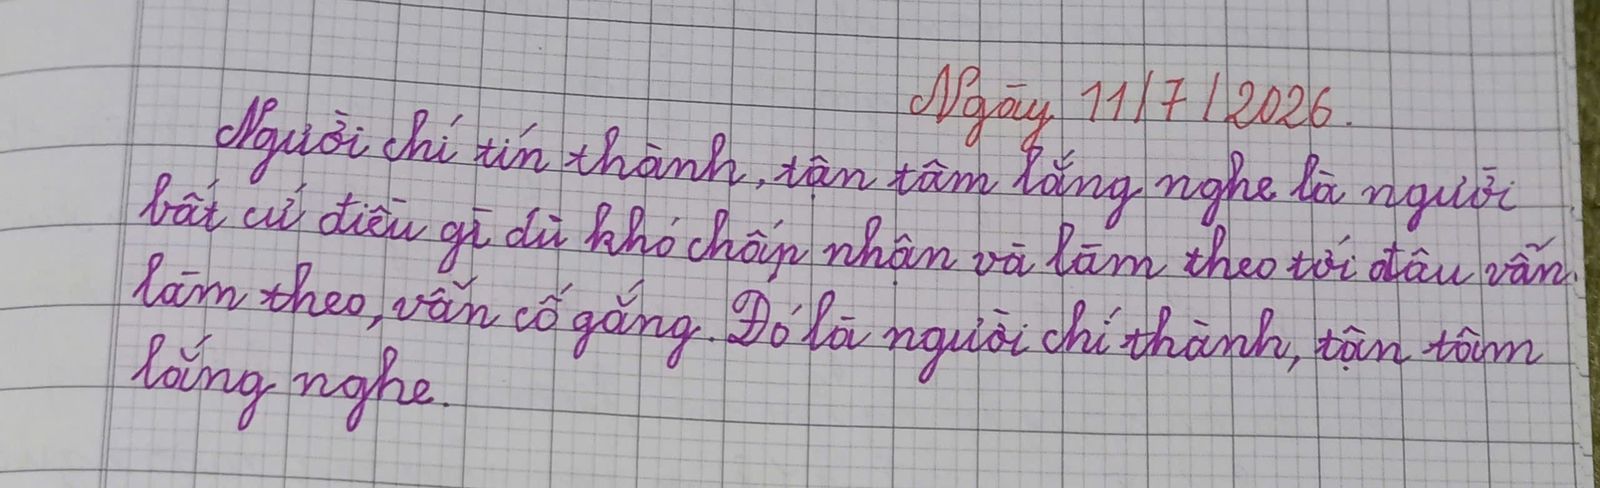 Ngày 11/7/2026.
Người chí tín thành, tận tâm lắng nghe là người
bất cứ điều gì dù khó chấp nhận và làm theo tới đâu vẫn
làm theo, vẫn cố gắng. Đó là người chí thành, tận tâm
lắng nghe.